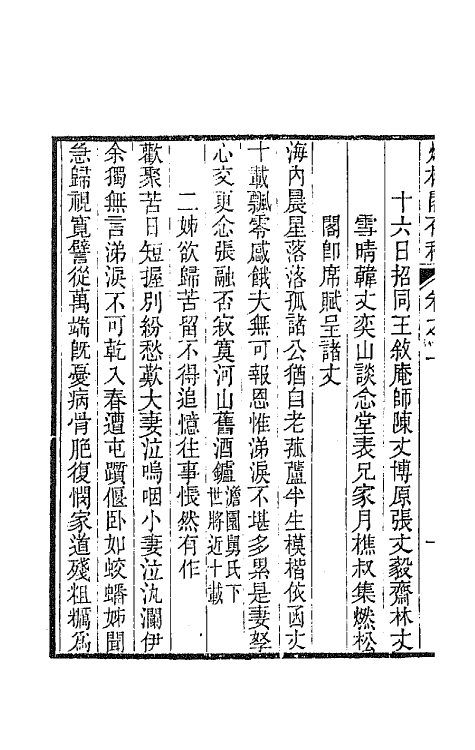 十六日招同王敘庵師陳丈博原張丈毅齋林丈
雪晴韓丈奕山談念堂表兄家月樵叔集燃松
閣即席賦呈諸丈
海內晨星落落孤諸公猶自老菰蘆半生模楷依函丈
十載飄零感餓夫無可報恩惟涕淚不堪多累是妻孥
心交更念張融否寂寞河山舊酒鑪澹園舅氏下世將近十載
二姊欲歸苦留不得追憶往事悵然有作
歡聚苦日短握別紛愁歎大妻泣嗚咽小妻泣汍瀾伊
余獨無言涕淚不可乾入春遭屯躓偃卧如蛟蟠姊聞
急歸視寬譬從萬端旣憂病骨脃復憫家道殘粗糲爲